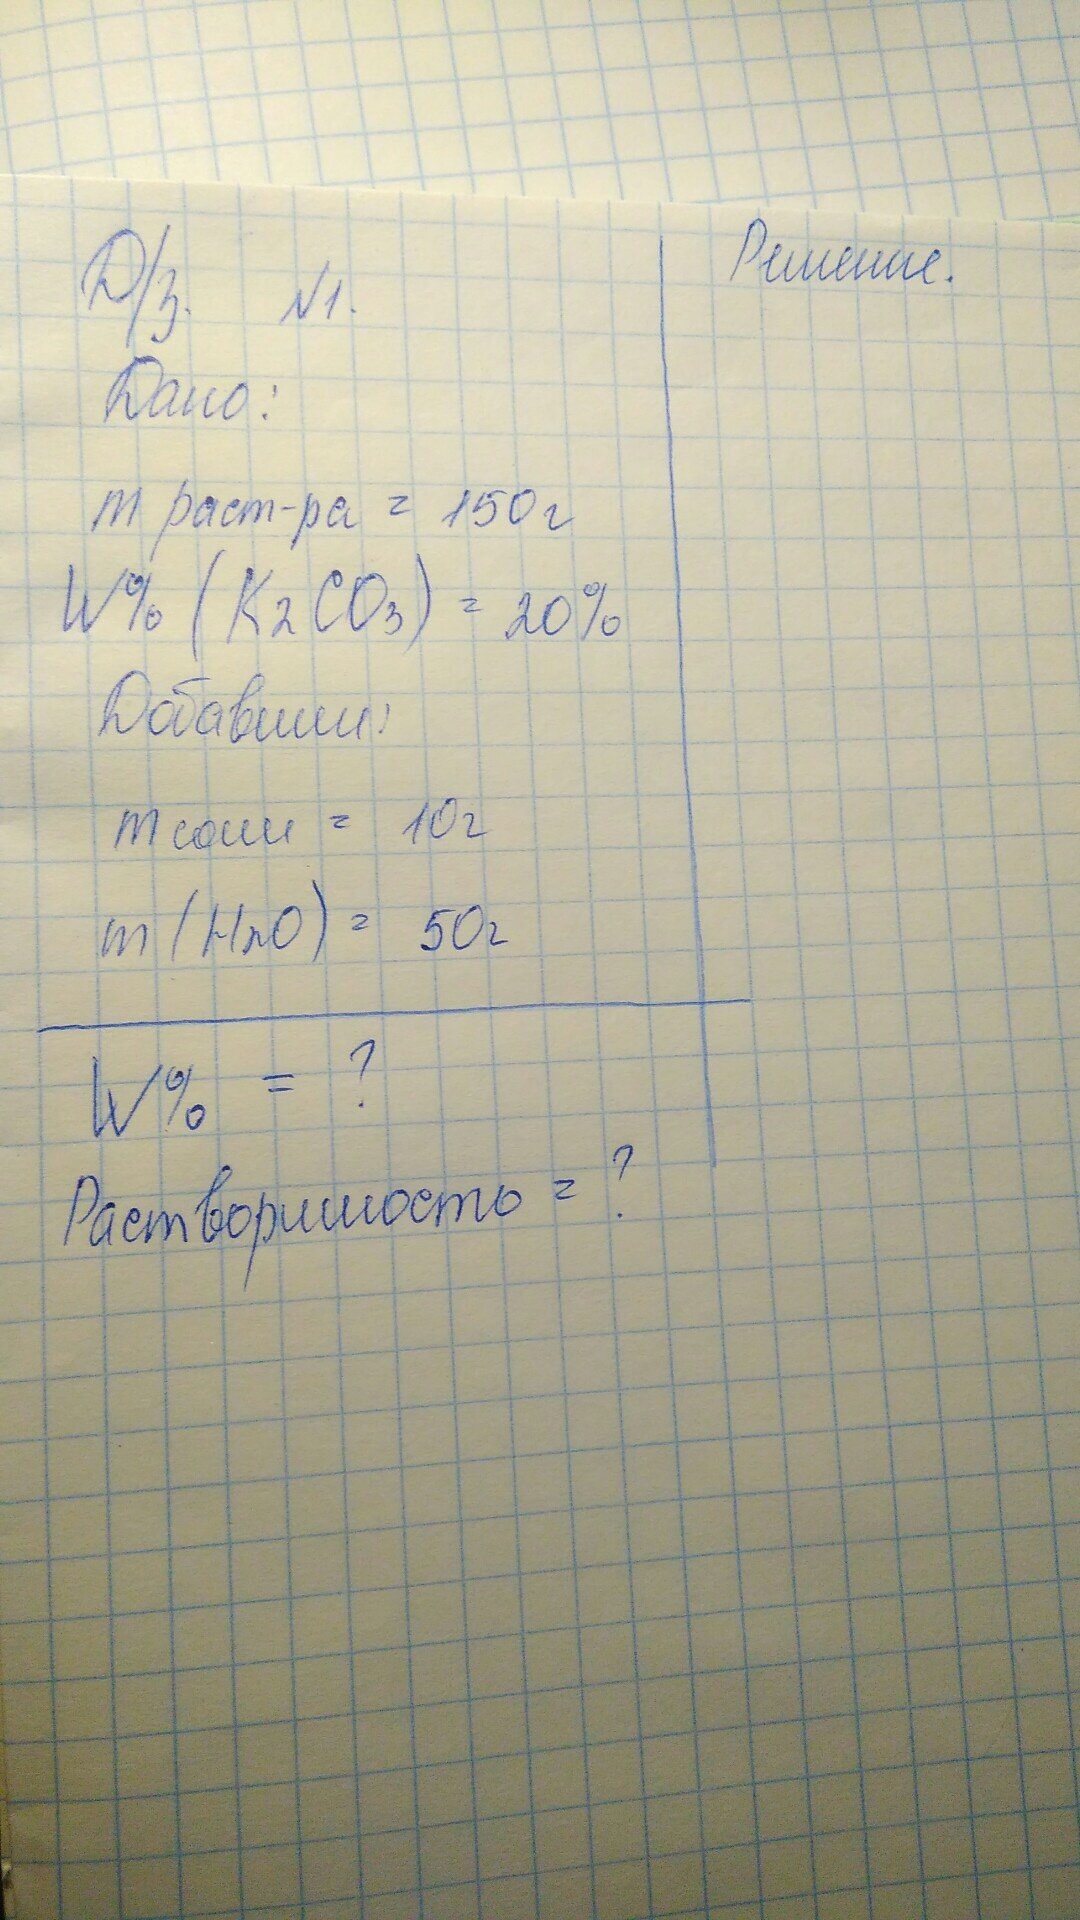 Д/з. №1.
Решение.
Дано:
m раст-ра = 150г
W% (K2CO3) = 20%
Добавили:
m соли = 10г
m (H2O) = 50г
W% = ?
Растворимость = ?